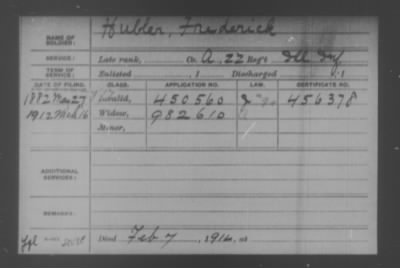 NAME OF SOLDIER: Hubler, Frederick
SERVICE: Late rank, Co. A, 22 Reg't Ill Inf
TERM OF SERVICE: Enlisted , 1 Discharged , 1
DATE OF FILING. CLASS. APPLICATION NO. LAW. CERTIFICATE NO.
1882 27 Invalid, 450560 456378
1912 16 Widow, 982610
Minor,
ADDITIONAL SERVICES:
REMARKS:
Died Feb 7, 1912, at